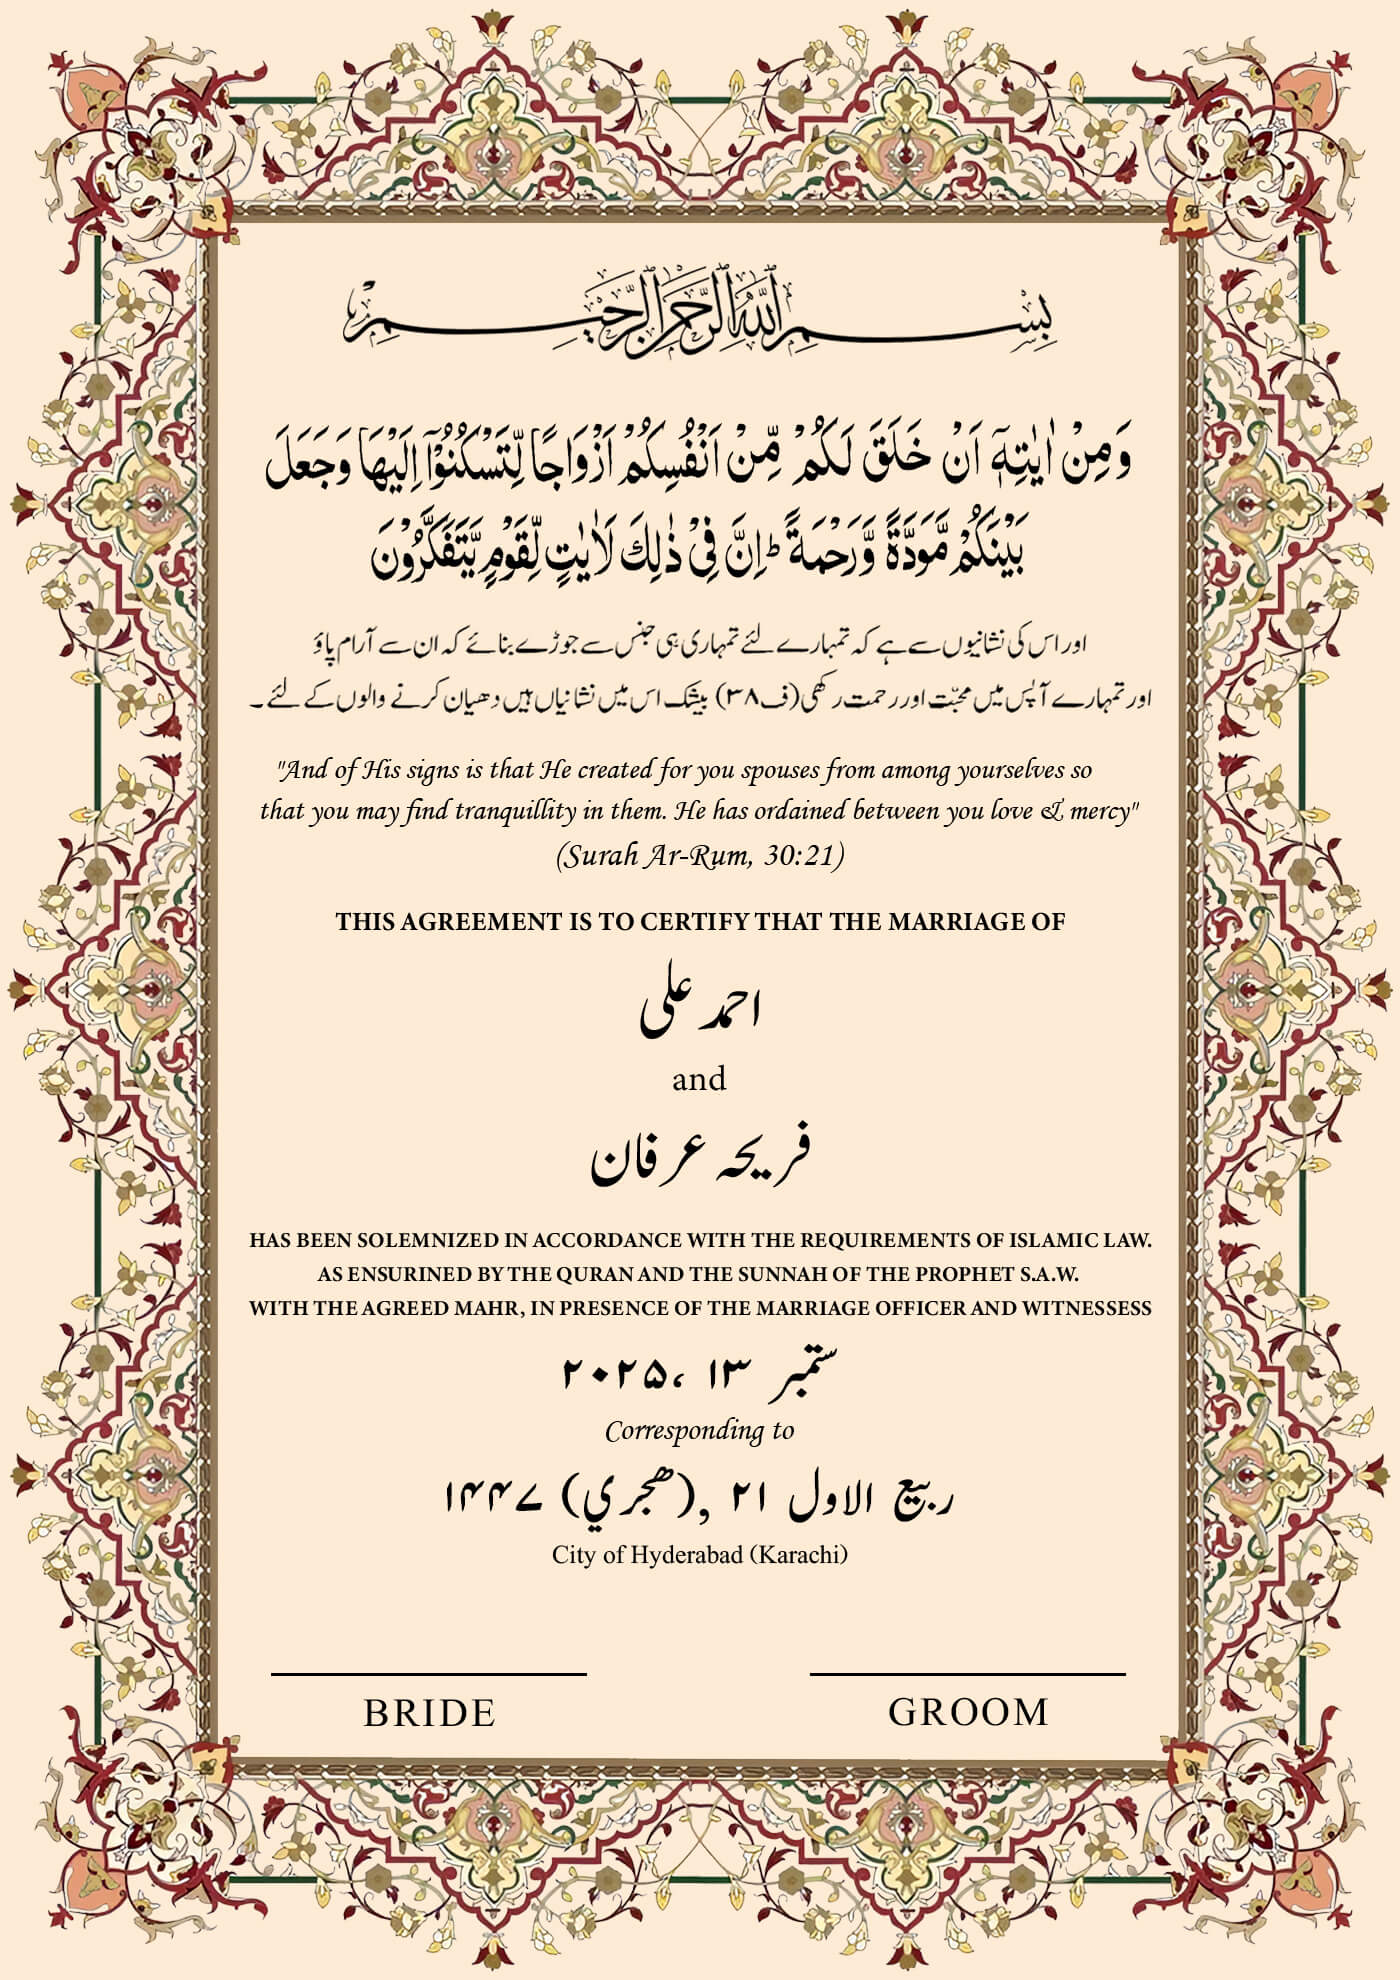 بِسْمِ اللَّهِ الرَّحْمَنِ الرَّحِيمِ
وَمِنْ اٰيٰتِهٖٓ اَنْ خَلَقَ لَكُمْ مِّنْ اَنْفُسِكُمْ اَزْوَاجًا لِّتَسْكُنُوْٓا اِلَيْهَا وَجَعَلَ
بَيْنَكُمْ مَّوَدَّةً وَّرَحْمَةً ؕ اِنَّ فِيْ ذٰلِكَ لَاٰيٰتٍ لِّقَوْمٍ يَّتَفَكَّرُوْنَ
اور اس کی نشانیوں سے ہے کہ تمہارے لئے تمہاری ہی جنس سے جوڑے بنائے کہ ان سے آرام پاؤ
اور تمہارے آپس میں محبّت اور رحمت رکھی (ف۳۸) بیشک اس میں نشانیاں ہیں دھیان کرنے والوں کے لئے۔
"And of His signs is that He created for you spouses from among yourselves so
that you may find tranquillity in them. He has ordained between you love & mercy"
(Surah Ar-Rum, 30:21)
THIS AGREEMENT IS TO CERTIFY THAT THE MARRIAGE OF
احمد علی
and
فریحہ عرفان
HAS BEEN SOLEMNIZED IN ACCORDANCE WITH THE REQUIREMENTS OF ISLAMIC LAW.
AS ENSURINED BY THE QURAN AND THE SUNNAH OF THE PROPHET S.A.W.
WITH THE AGREED MAHR, IN PRESENCE OF THE MARRIAGE OFFICER AND WITNESSESS
ستمبر ۱۳ ،۲۰۲۵
Corresponding to
ربیع الاول ۲۱ ,(هجري) ۱۴۴۷
City of Hyderabad (Karachi)
BRIDE
GROOM